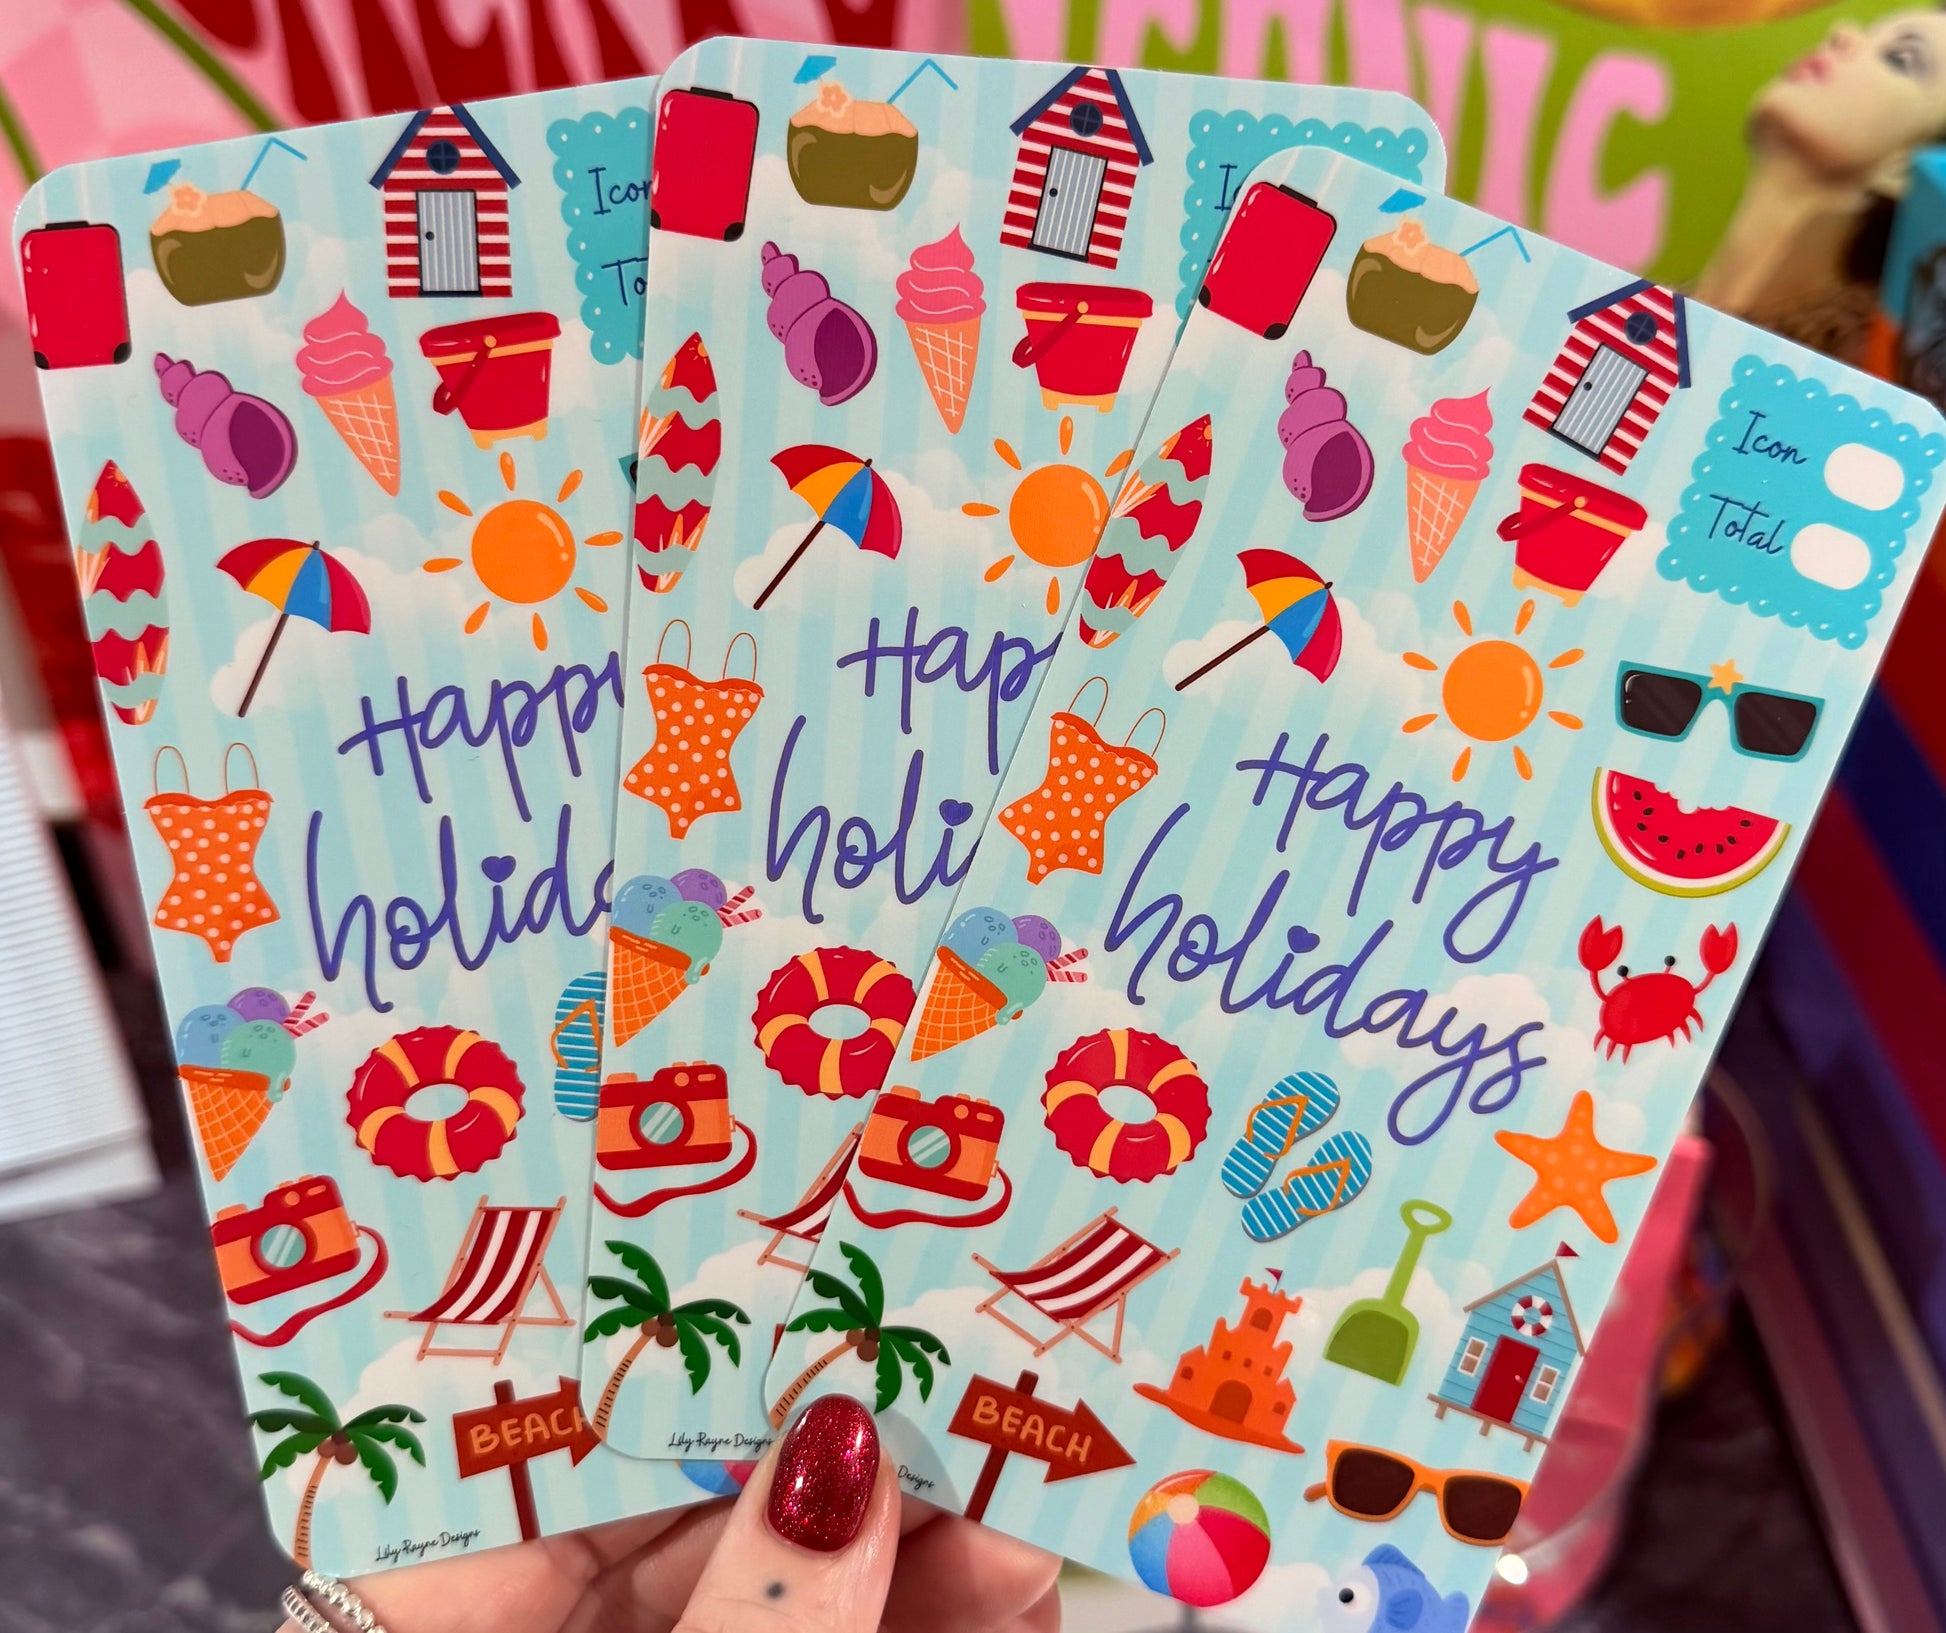 Icon
Total
Happy
holidays
BEACH
Lily Rayne Designs
Happy
holi
BEACH
Lily Rayne Designs
Icon
Total
Happy
holidays
BEACH
Designs